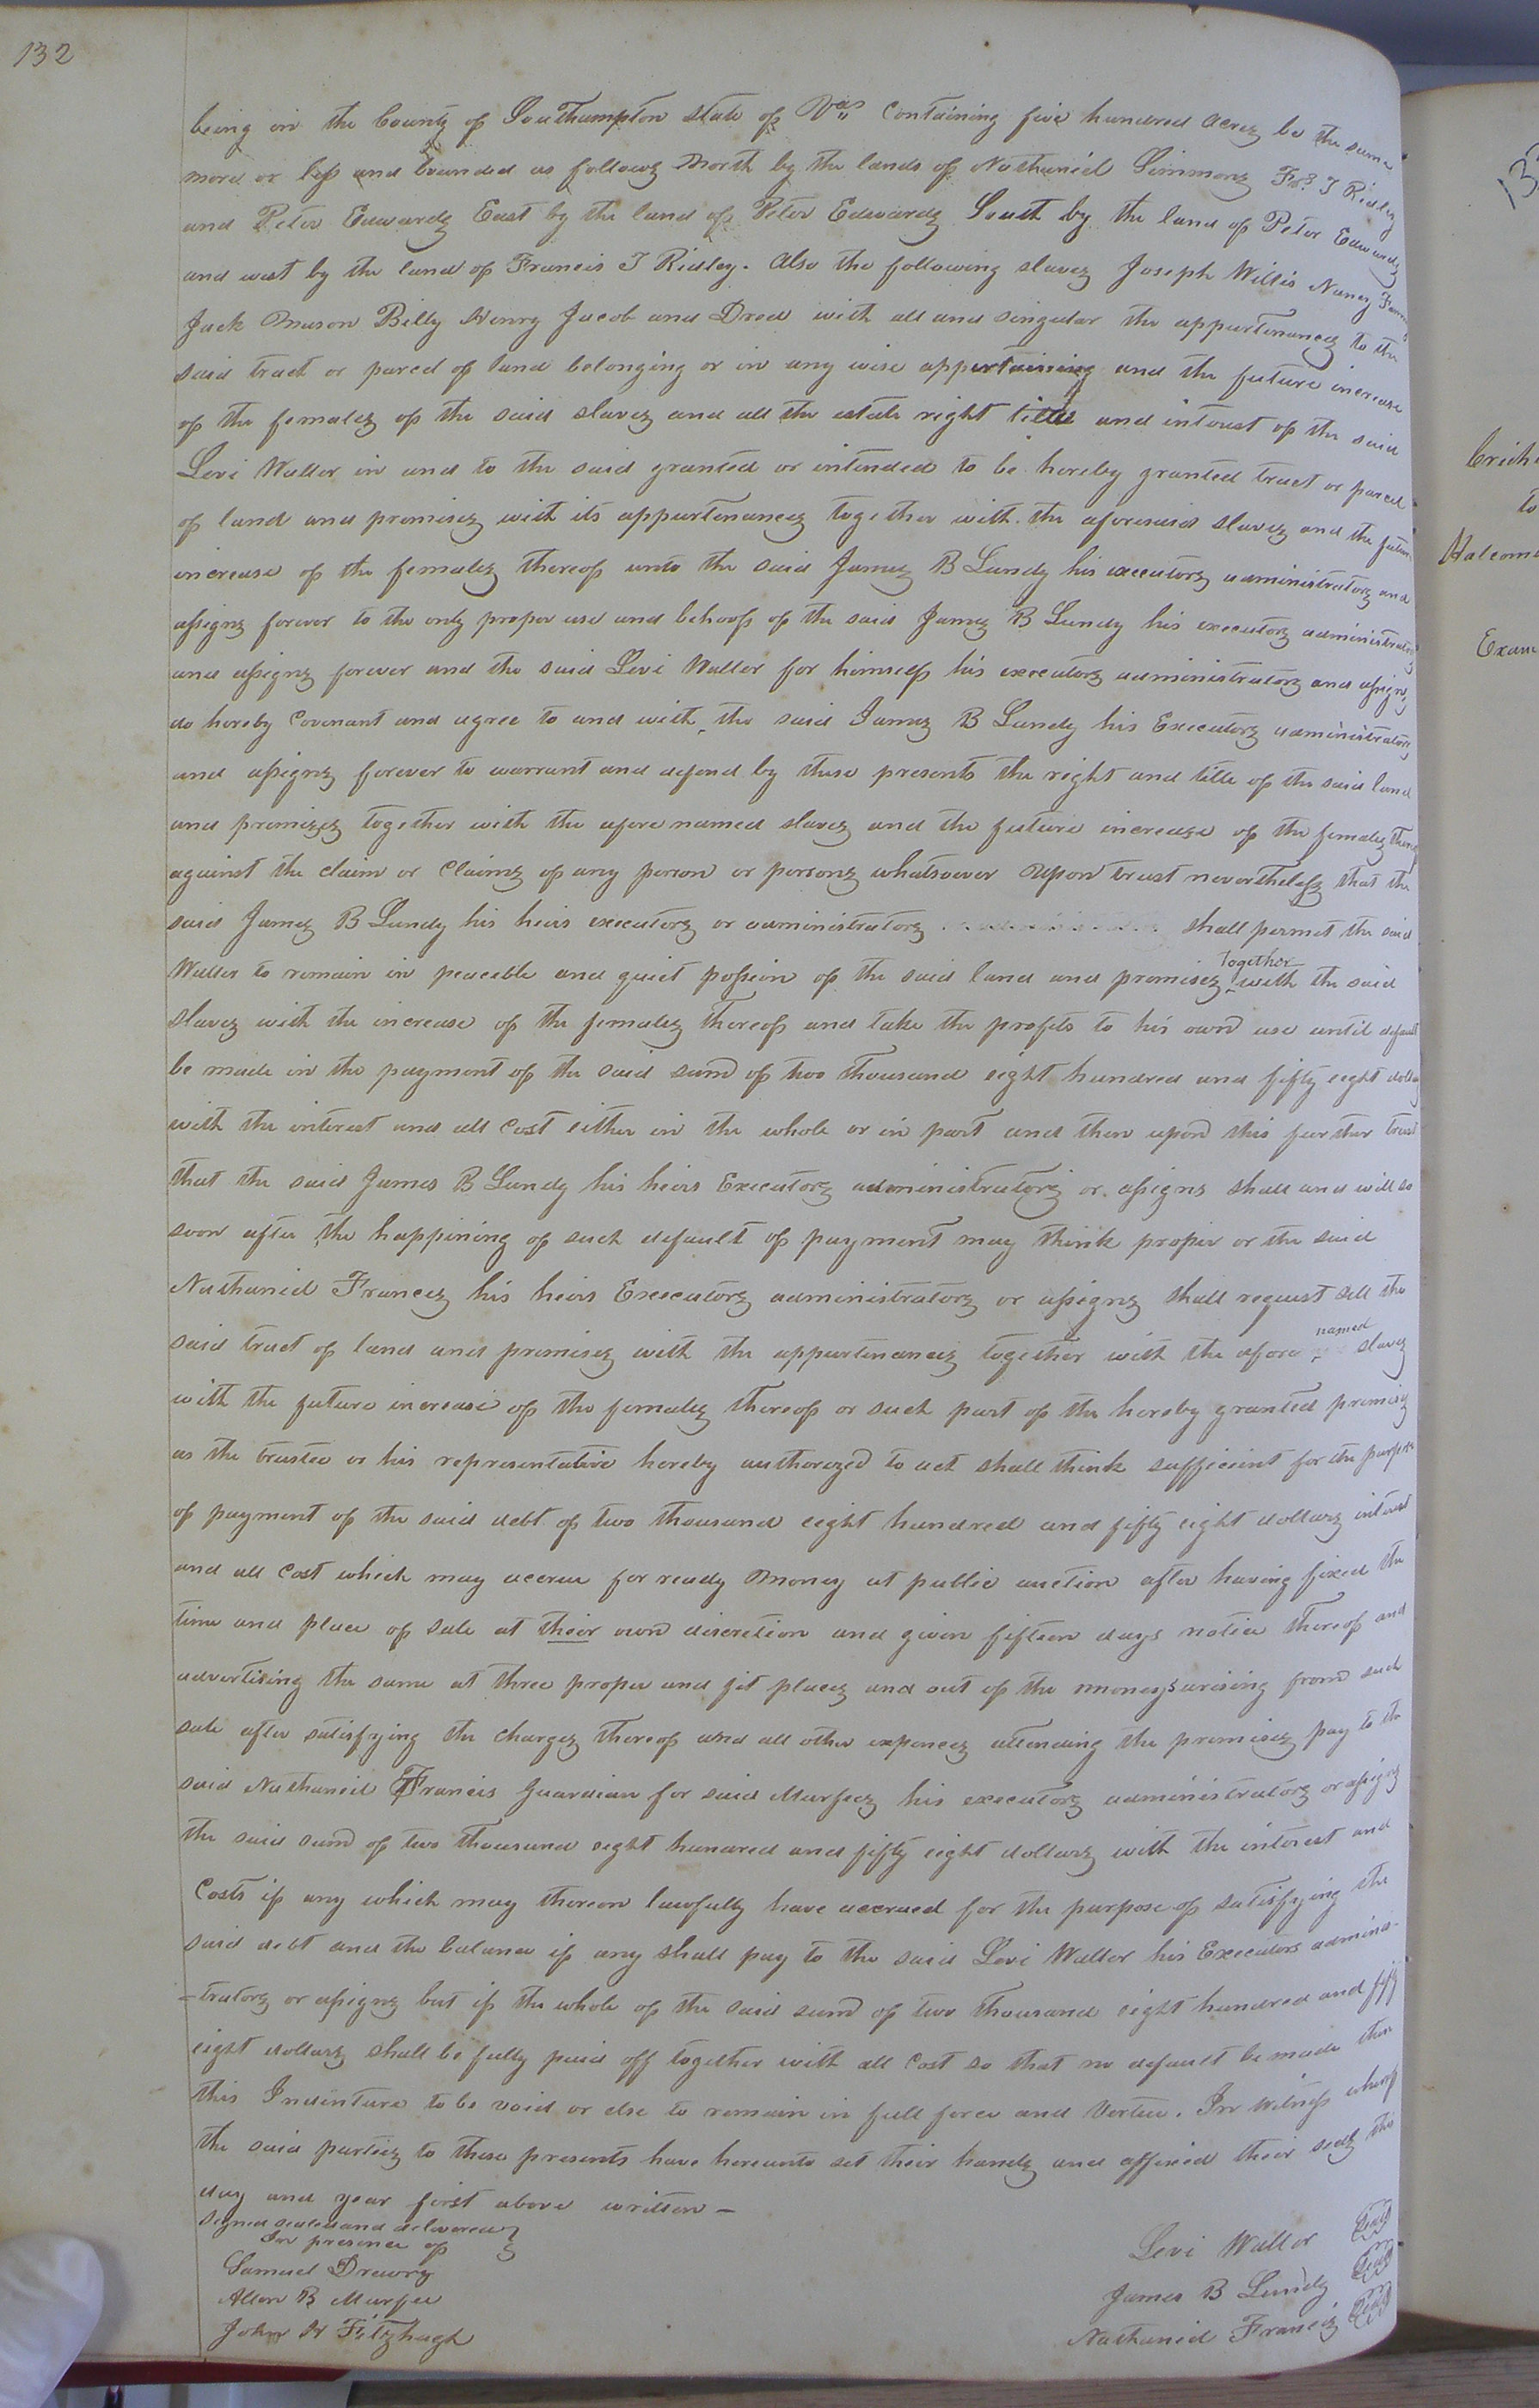 132
being in the County of Southampton state of Vas containing five hundred acres be the same
more or less and bounded as follows North by the lands of Nathaniel Simmons Frs. T Ridley
and Peter Edwards East by the land of Peter Edwards South by the land of Peter Edwards
and west by the land of Francis T Ridley. Also the following slaves Joseph Willis Nancy
Jack Mason Billy Henry Jacob and Dred with all and singular the appurtenances to the
said tract or parcel of land belonging or in any wise appertaining and the future increase
of the females of the said slaves and all the estate right title and interest of the said
Levi Waller in and to the said granted or intended to be hereby granted tract or parcel
of land and premises with its appurtenances together with the aforesaid slaves and the future
increase of the females thereof unto the said James B Lundy his executors administrators and
assigns forever to the only proper use and behoof of the said James B Lundy his executors administrators
and assigns forever and the said Levi Waller for himself his executors administrators and assigns
do hereby Covenant and agree to and with the said James B Lundy his Executors administrators
and assigns forever to warrant and defend by these presents the right and title of the said land
and premises together with the afore named slaves and the future increase of the females thereof
against the claim or claims of any person or persons whatsoever Upon trust nevertheless that the
said James B Lundy his heirs executors or administrators shall permet the said
Waller to remain in peaceble and quiet possion of the said land and premises together with the said
slaves with the increase of the females thereof and take the profits to his own use until default
be made in the payment of the said sum of two thousand eight hundred and fifty eight dollars
with the interest and all cost either in the whole or in part and then upon this further trust
that the said James B Lundy his heirs Executors administrators or assigns shall and will so
soon after the happining of such default of payment may think proper or the said
Nathaniel Frances his heirs Executors administrators or assigns shall request sell the
said tract of land and premises with the appurtenances together with the afore named slaves
with the future increase of the females thereof or such part of the hereby granted premises
as the trustee or his representative hereby authorozed to act shall think sufficient for the purpose
of payment of the said debt of two thousand eight hundred and fifty eight dollars interest
and all cost which may accrue for ready money at public auction after having fixed the
time and place of sale at their own discretion and given fifteen days notice thereof and
advertising the same at three proper and fit places and out of the moneys arising from such
sale after satisfying the charges thereof and all other expences attending the premises pay to the
said Nathaniel Francis Guardian for said Murfees his executors administrators or assigns
the said sum of two thousand eight hundred and fifty eight dollars with the interest and
costs if any which may thereon lawfully have accrued for the purpose of satisfying the
said debt and the balance if any shall pay to the said Levi Waller his Executors adminis-
-trators or assigns but if the whole of the said sum of two thousand eight hundred and fifty
eight dollars shall be fully paid off together with all cost so that no default be made then
this Indenture to be void or else to remain in full force and Vertue. In witness whereof
the said parties to these presents have hereunto set their hands and affixed their seals the
day and year first above written -
Signed sealed and delivered
In presence of
Samuel Drewry
Allen B Murfee
John H Fitzhugh
Levi Waller Seal
James B Lundy Seal
Nathaniel Francis Seal
to
Exam